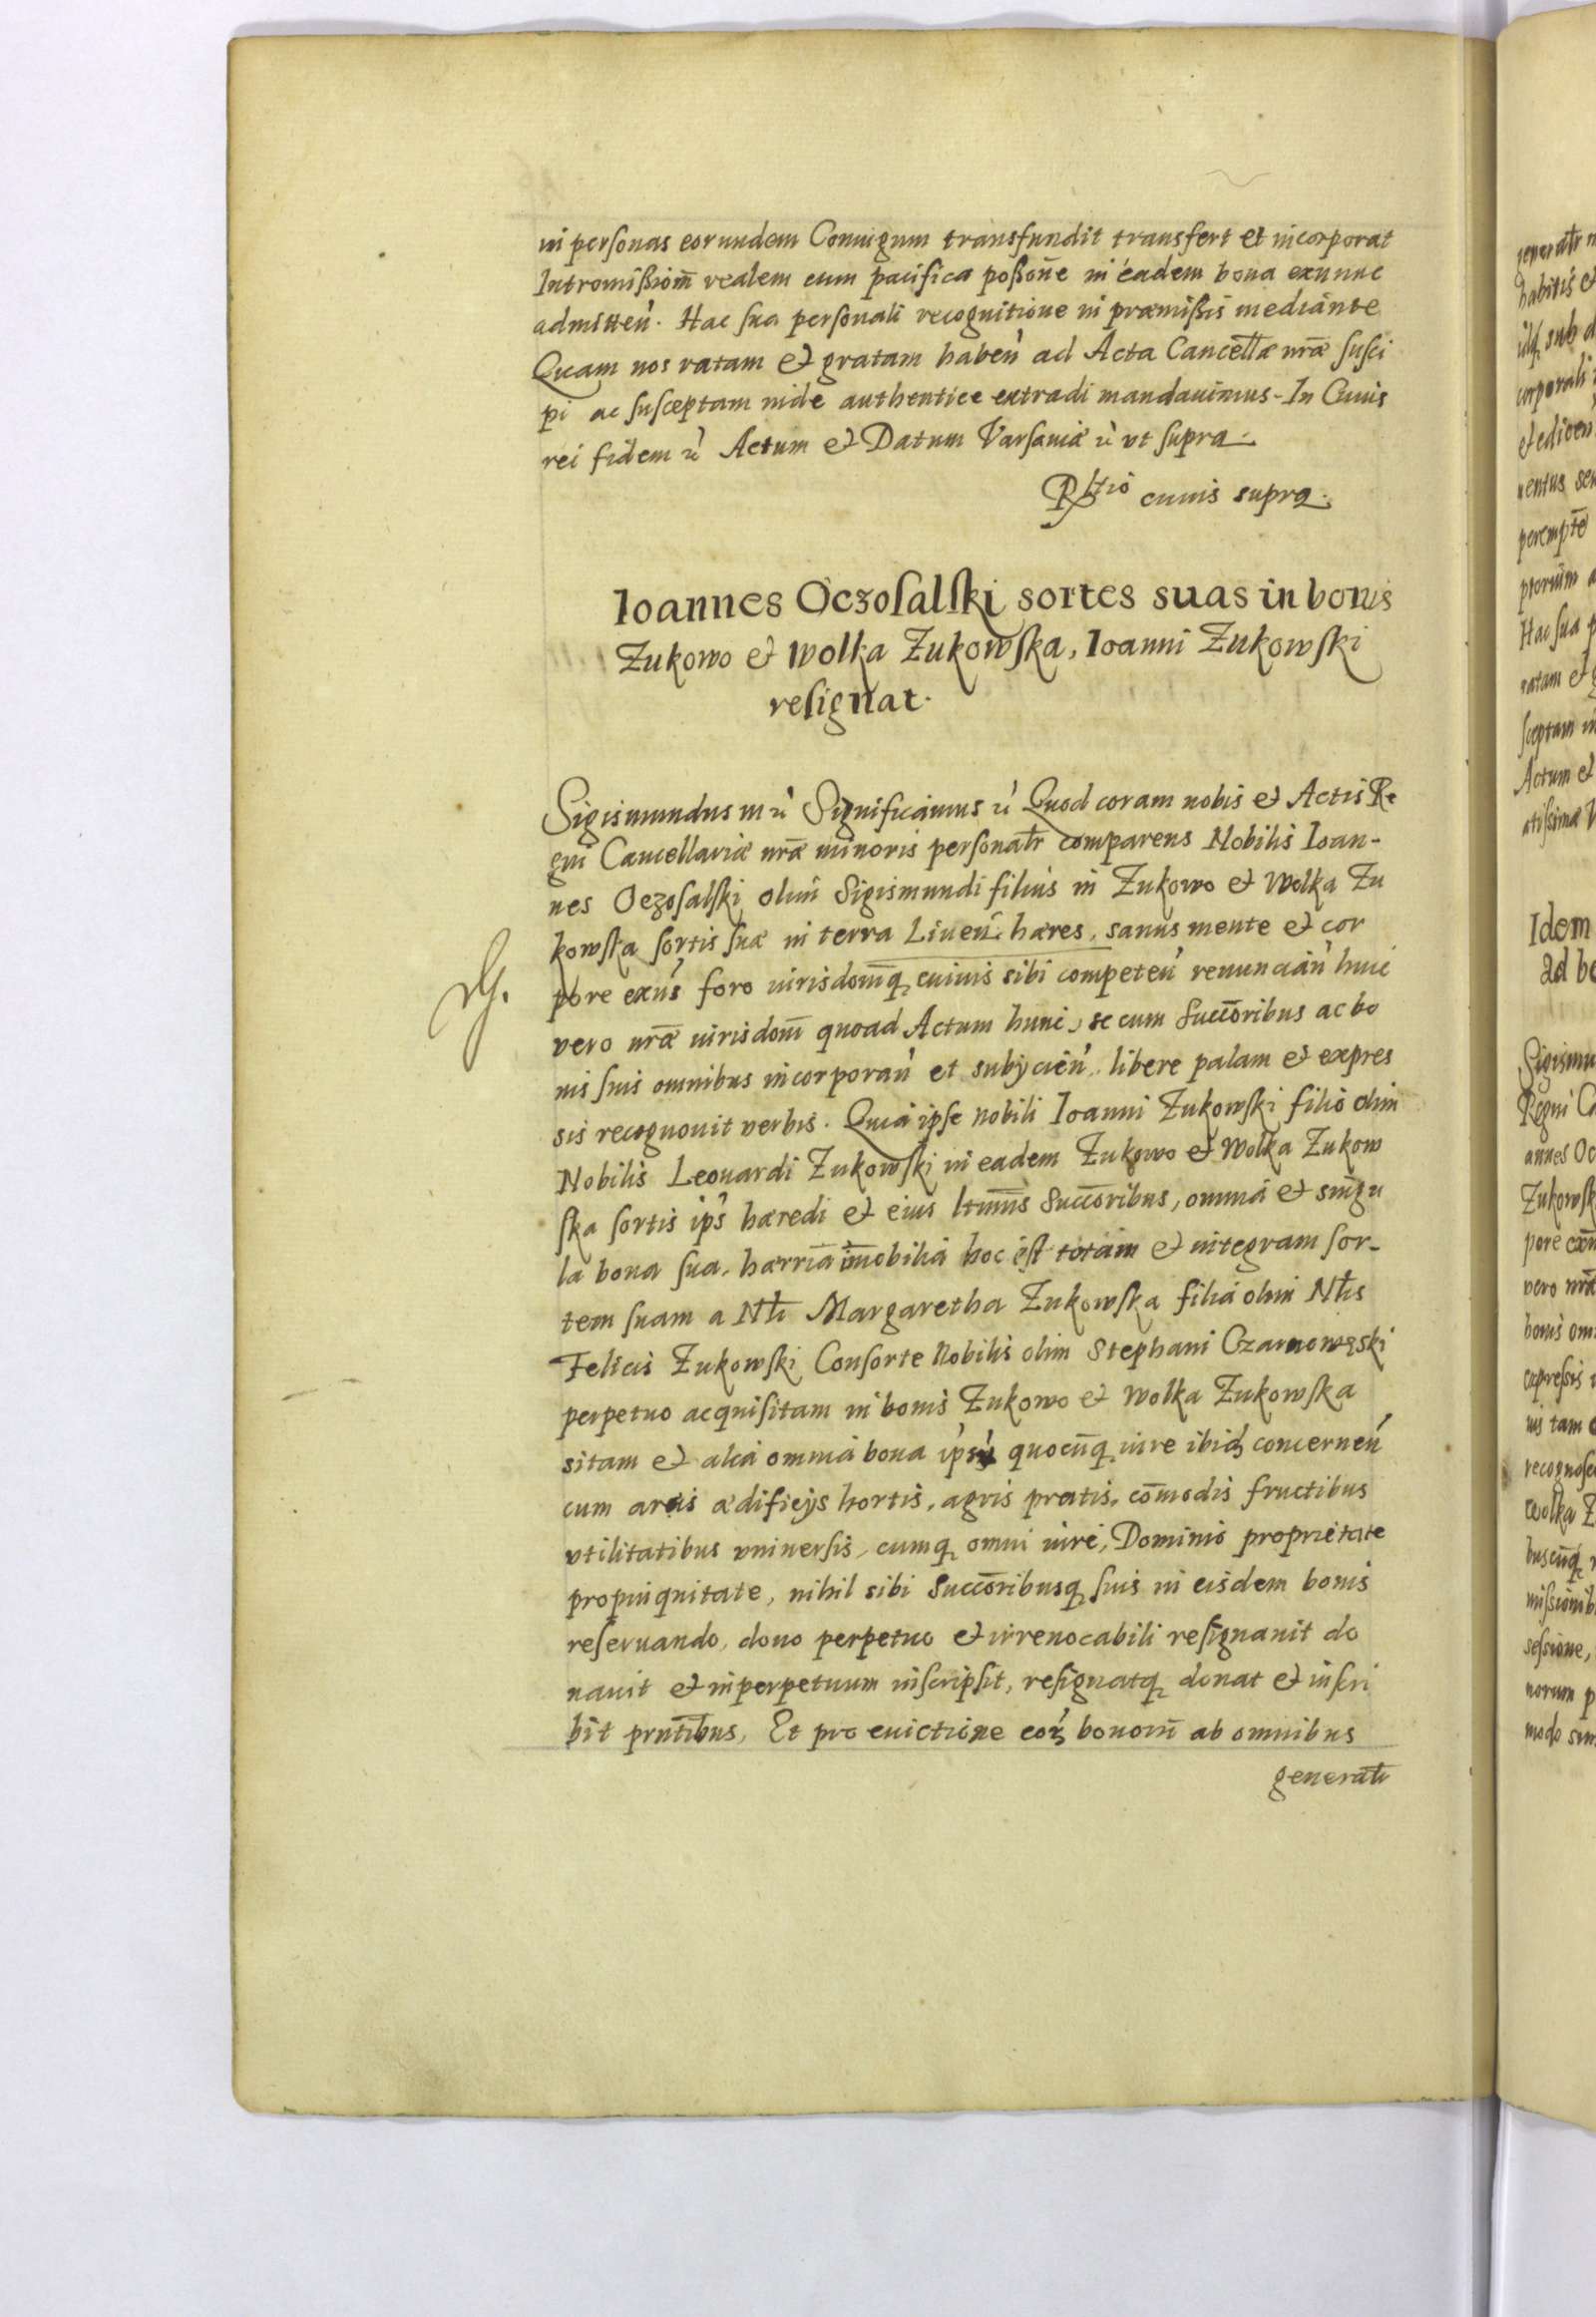 in personas eorundem Coniugum transfundit transfert et incorporat
Intromißiom̃ realem cum pacifica poßoñe in eadem bona exnunc
admitteñ. Hac sua personali recognitione in præmißis mediante
Quam nos ratam et gratam habeñ ad Acta Cancellæ nr̃æ susci
pi ac susceptam inde authentice extradi mandauimus. In Cuius
rei fidem etc Actum et Datum Varsauiæ etc vt supra.
Rltio cuius supra.
Ioannes Oczosalski sortes suas in bonis
Zukowo et Wolka Zukowska, Ioanni Zukowski
resignat.
Sigismundus III etc Significamus etc Quod coram nobis et Actis Re
gni Cancellariæ nr̃æ minoris personalr̃ comparens Nobilis Ioan-
nes Oczosalski olim Sigismundi filius in Zukowo et Wolka Zu
kowska sortis suæ in terra Liueñ. hæres, sanus mente et cor
pore exñs foro iurisdom̃q̨ cuiuis sibi competeñ renunciañ huic
vero nr̃æ iurisdom̃ quoad Actum hunc, se cum Succõribus ac bo
nis suis omnibus incorporañ et subÿcieñ. libere palam et expres
sis recognouit verbis. Quia ipse nobili Ioanni Zukowski filio olim
Nobilis Leonardi Zukowski in eadem Zukowo et Wolka Zukow
ska sortis ips̃ hæredi et eius ltimis̃ Succõribus, omnia et singu
la bona sua, hærria im̃obilia hoc est totam et integram sor-
tem suam a Nłi Margaretha Zukowska filia olim Nłis
Felicis Zukowski Consorte Nobilis olim Stephani Czarnowęski
perpetuo acquisitam in bonis Zukowo et Wolka Zukowska
sitam et alia omnia bona ips̃ quocũq̨ iure ibid̨ concerneñ
cum areis ædificijs hortis, agris pratis, cõmodis fructibus
vtilitatibus vniuersis, cumq̨ omni iure, Dominio proprietate
propinquitate, nihil sibi Succõribusq̨ suis in eisdem bonis
reseruando, dono perpetuo et irreuocabili resignauit do
nauit et in perpetuum inscripsit, resignatq̨ donat et inscri
bit prñtibus, Et pro euictione eoꝝ bonorũ ab omnibus
generalr̃